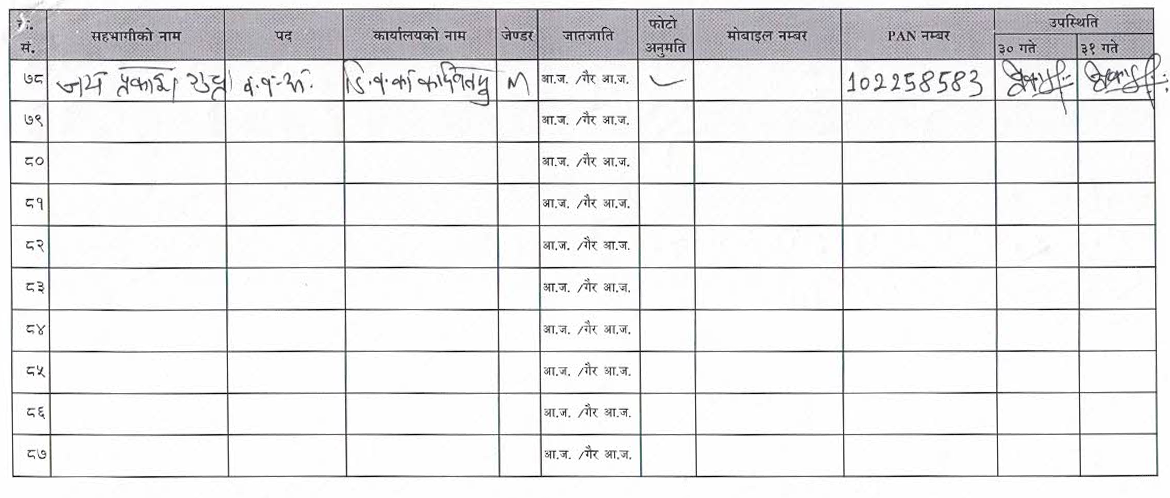 क्र. सं. सहभागीको नाम पद कार्यालयको नाम जेण्डर जातजाति फोटो अनुमति मोबाइल नम्बर PAN नम्बर उपस्थिति
३० गते ३१ गते
७८ जय प्रकाश M आ.ज. /गैर आ.ज. 102258583
७९ आ.ज. /गैर आ.ज.
८० आ.ज. /गैर आ.ज.
८१ आ.ज. /गैर आ.ज.
८२ आ.ज. /गैर आ.ज.
८३ आ.ज. /गैर आ.ज.
८४ आ.ज. /गैर आ.ज.
८५ आ.ज. /गैर आ.ज.
८६ आ.ज. /गैर आ.ज.
८७ आ.ज. /गैर आ.ज.